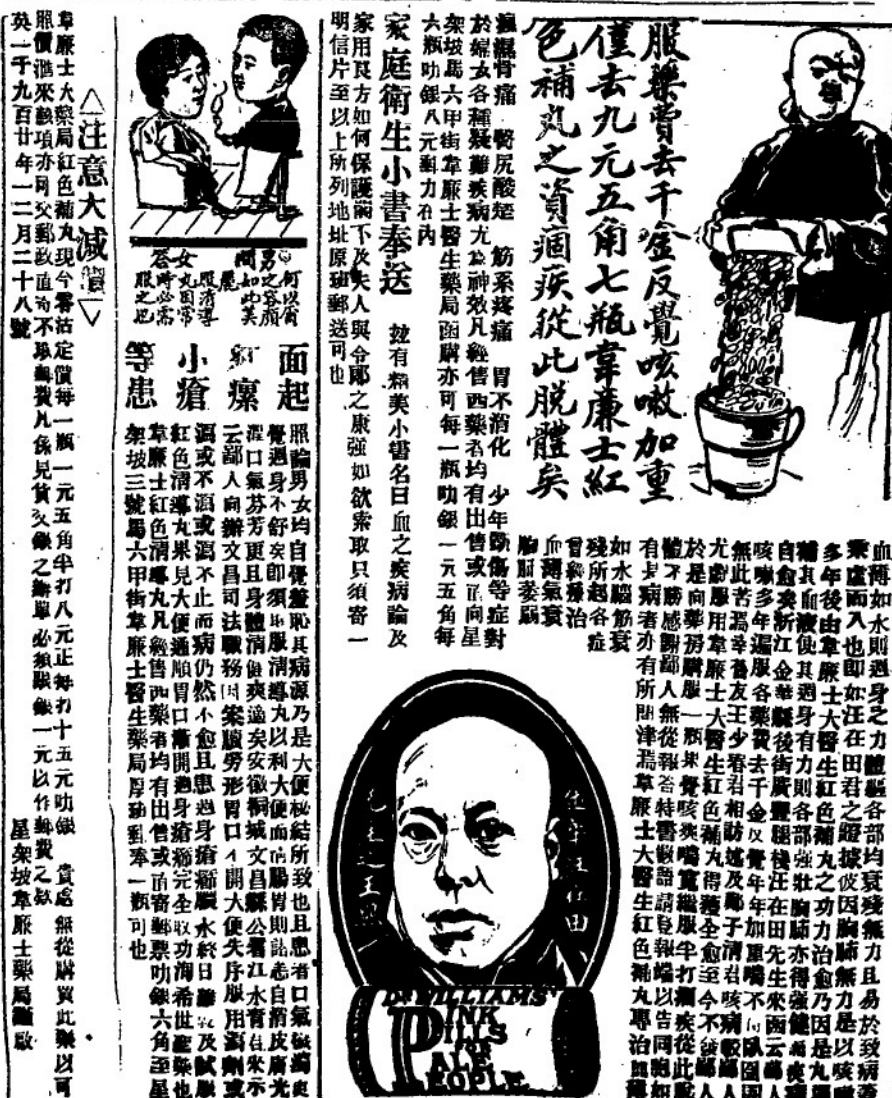 服藥費去千金反覺咳嗽加重
僅去九元五角七瓶韋廉士紅
色補丸之資痼疾從此脫體矣
血薄如水則週身之力體軀各部均衰殘無力且易於致病
乘虛而入也即如汪在田君之證據彼因胸肺無力是以咳嗽
多年後由韋廉士大醫生紅色補丸之功力治愈乃因是丸
補其血液使其週身有力則各部強壯胸肺亦得強健
自愈矣浙江金華縣後街廣豐腿棧汪在田先生來函云鄙人
咳嗽多年遍服各藥費去千金反覺年年加重喘不
無此苦焉幸舊友王少春君相訪述及鄭子清君咳病
尤劇服用韋廉士大醫生紅色補丸得獲全愈至今不發鄙人
於是向藥房購服一瓶果覺咳痰喘寬繼服半打痼疾從此脫
體不勝感謝鄙人無從報答特書數語請登報端以告同胞如
有患病者亦有所問津焉韋廉士大醫生紅色補丸專治血薄
如水腦筋衰
殘所起各症
曾經療治
血薄氣衰
胸肺萎弱
瘋濕骨痛 臀尻酸楚 筋系疼痛 胃不消化 少年斲傷等症對
於婦女各種疑難疾病尤為神效凡經售西藥者均有出售或直向星
架坡馬六甲街韋廉士醫生藥局函購亦可每一瓶叻銀一元五角每
六瓶叻銀八元郵力在內
家庭衛生小書奉送
玆有精美小書名曰血之疾病論及
家用良方如何保護閣下及夫人與令郎之康強如欲索取只須寄一
明信片至以上所列地址原班郵送可也
汪在田
DR WILLIAMS'
PINK
PILLS
FOR
PALE
PEOPLE
男之容顏
問如此美
麗
女丸因常
答時必需
服之也
服清導
面起
紅瘰
小瘡
等患
照論男女均自覺羞恥其病源乃是大便秘結所致也且患者口氣
覺週身不舒矣即須服清導丸以利大便而清腸胃則諸恙自消皮膚光
潔口氣芬芳更且身體清健爽適矣安徽桐城文昌縣公署江水青君來示
云鄙人向辦文昌司法職務因案牘勞形胃口不開大便失序服用瀉劑或
瀉或不瀉或瀉不止而病仍然不愈且患週身瘡癤膿水終日及試服
紅色清導丸果見大便通順胃口漸開週身瘡癤完全收功洵希世聖藥也
韋廉士紅色清導丸凡經售西藥者均有出售或直寄郵票叻銀六角至星
架坡三號馬六甲街韋廉士醫生藥局原班郵奉一瓶可也
△注意大減價▽
韋廉士大藥局紅色補丸現今零沽定價每一瓶一元五角半打八元正每打十五元叻銀 貴處無從購買此藥以可
照價滙來該項亦同交郵政直寄不取郵費凡係見貨交銀之辦單必須賬銀一元以作郵費之款
英一千九百廿年一二月二十八號 星架坡韋廉士藥局謹啟